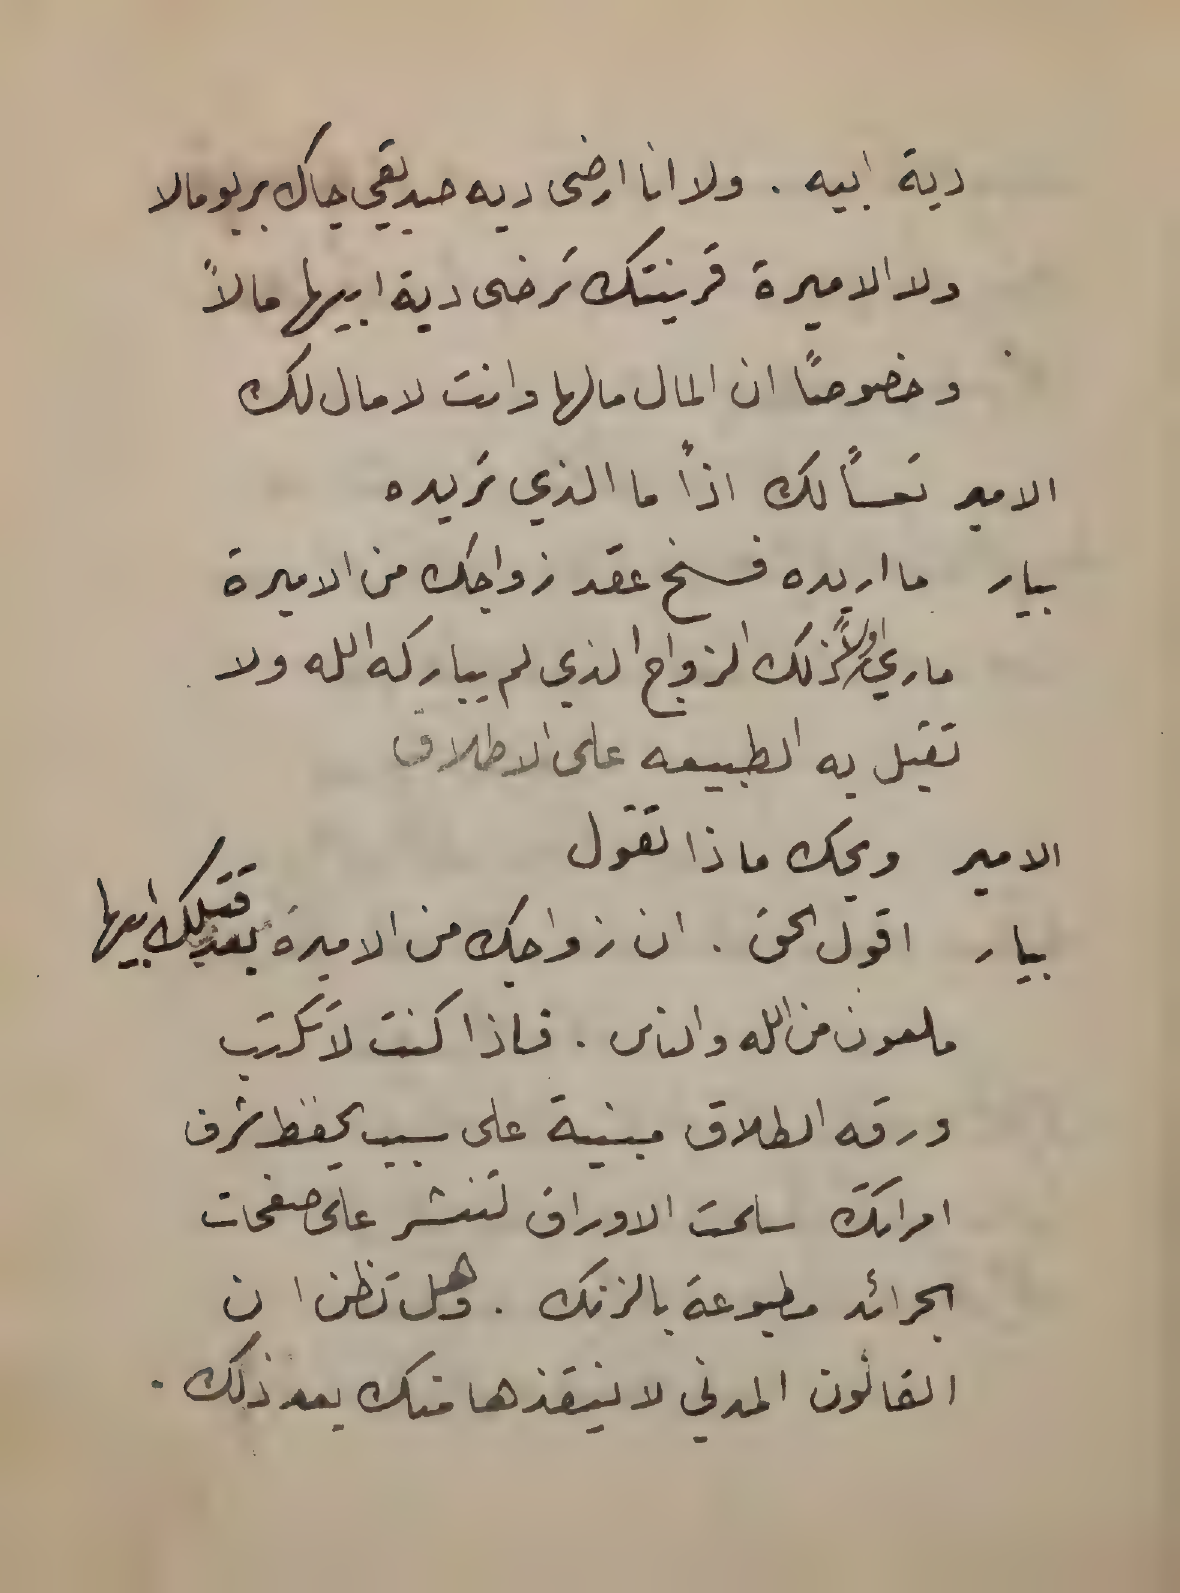 دية ابيه . ولا انا ارضى ديه صديقي جاك بريو مالا
ولا الاميرة قرينتك ترضى دية ابيها مالاً
وخصوصًا ان المال مالها وانت لا مال لك
الامير تعسًا لك اذاً ما الذي تريده
بيار ما اريده فسخ عقد زواجك من الاميرة
ماري اولاً ذلك الزواج الذي لم يباركه الله ولا
تقبل به الطبيعه على الاطلاق
الامير ويحك ماذا تقول
بيار اقول الحق . ان زواجك من الاميرة بعد قتلك ابيها
ملعون من الله والناس . فاذا كنت لا تكتب
ورقه الطلاق مبنية على سبب يحفظ شرف
امراتك سلمت الاوراق لتنشر على صفحات
الجرائد مطبوعة بالزنك . وهل تظن ان
القانون المدني لا ينقذها منك بعد ذلك .